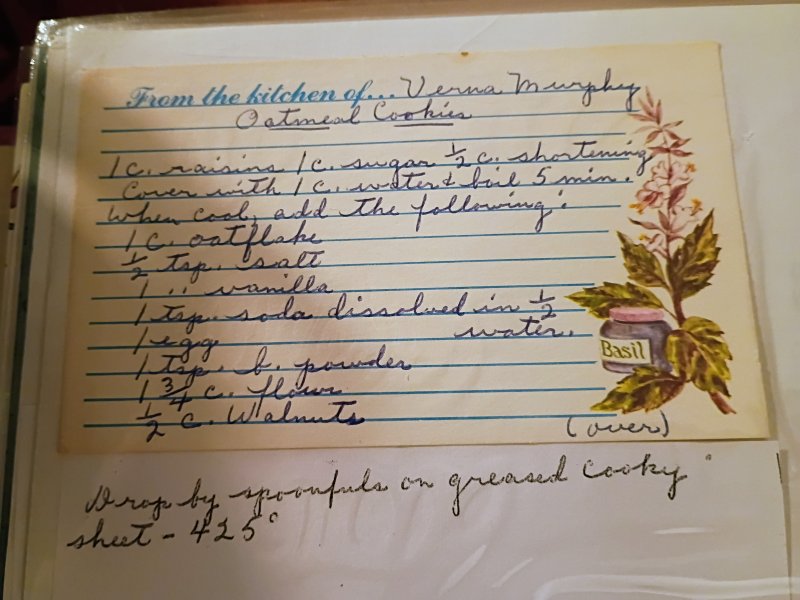 From the kitchen of... Verna Murphy
Oatmeal Cookies
1 c. raisins 1 c. sugar 1/2 c. shortening
Cover with 1 c. water & boil 5 min.
When cool, add the following:
1 c. oatflake
1/2 tsp. salt
1 " vanilla
1 tsp. soda dissolved in 1/2
water.
1 egg
1 tsp. b. powder
1 3/4 c. flour
1/2 c. Walnuts
(over)
Basil
Drop by spoonfuls on greased cooky
sheet - 425°